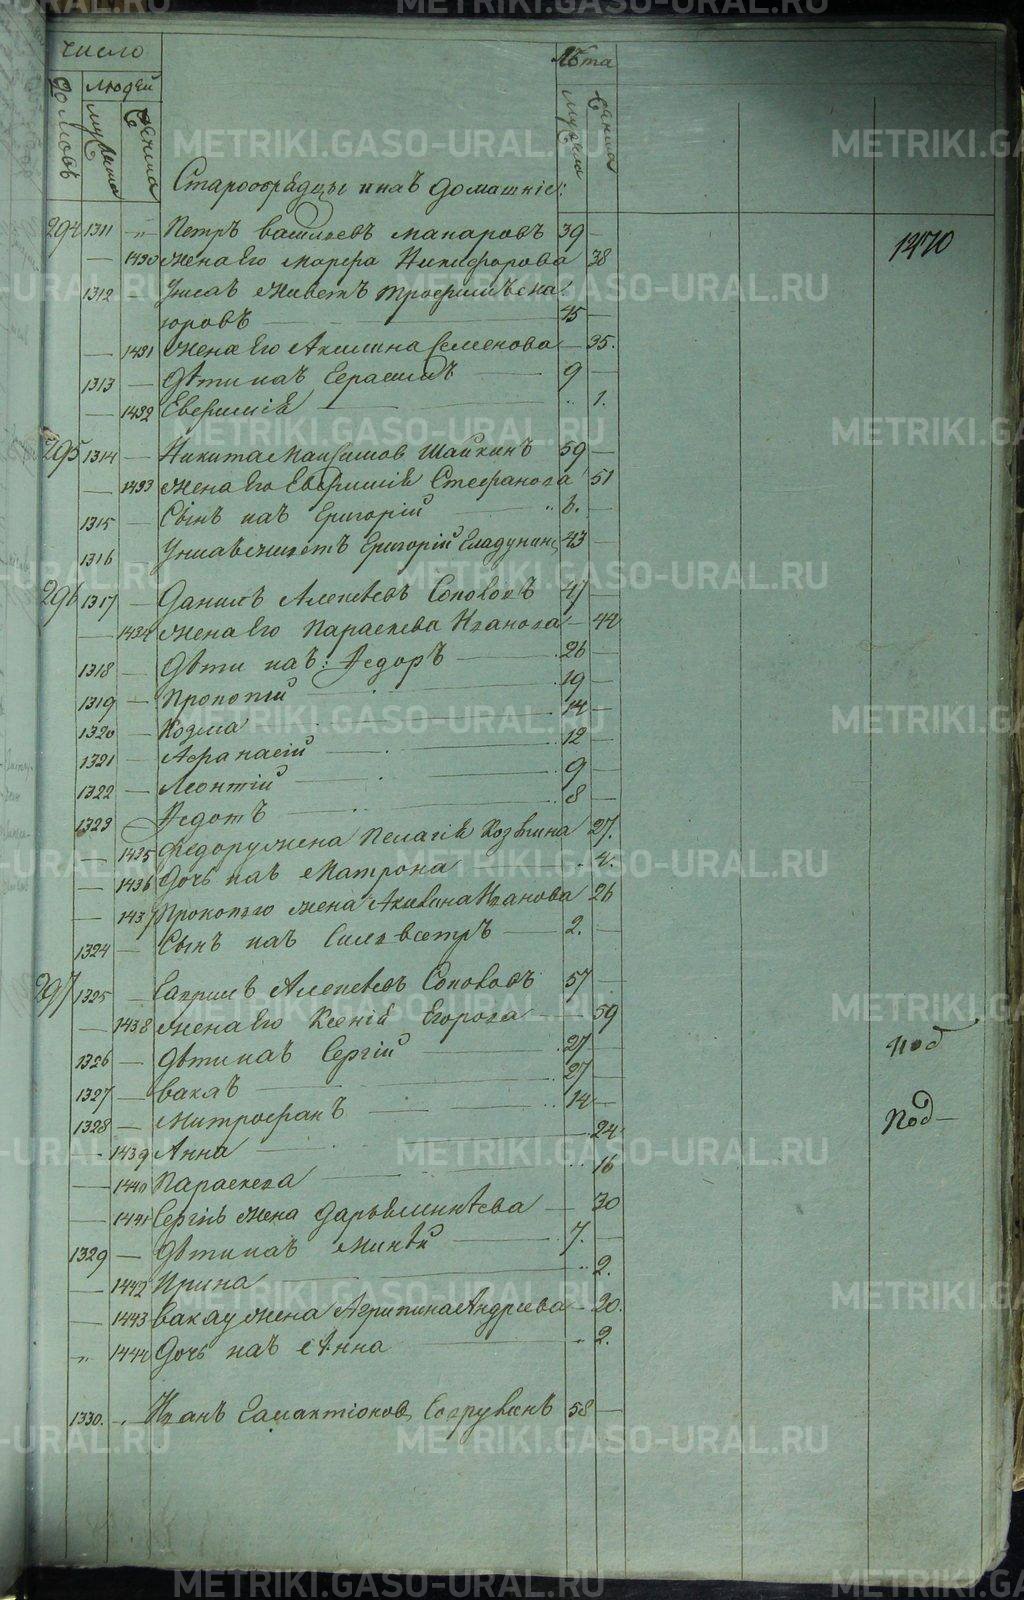 число
Лѣта
Домовъ
людей
мужеска
женска
мужска
женска
Старообрядцы и ихъ домашніе:
294 1311 — Петръ Васильевъ Макаровъ 39 —
— 1430 жена Его Марфа Никифорова — 38
1312 — У нихъ живетъ Трофимъ
юровъ — 45 —
— 1431 жена Его Акилина Семенова — 35.
1313 — дѣти ихъ Герасимъ — 9 —
— 1432 Евфимія — 1.
295 1314 — Никита Максимов Шайкинъ 59 —
— 1433 жена Его Евфимія Стефанова 51
1315 — Сынъ ихъ Григорій — 6. —
1316 У нихъ живетъ Григорій 43 —
296 1317 — Данилъ Алексѣевъ Солововъ 47 —
— 1434 жена Его Параскева Иванова — 44
1318 — дѣти ихъ: Федоръ — 26 —
1319 — Прокопій — 19 —
1320 — Козма — 14 —
1321 — Афанасій — 12 —
1322 — Леонтій — 9 —
1323 Федотъ — 8 —
— 1435 Федору жена Пелагія Козмина 27.
— 1436 Дочь ихъ Матрона 4.
— 1437 Прокопію жена Акилина Иванова 26
1324 — Сынъ ихъ Силивестръ — 2. —
297 1325 — Гаврилъ Алексѣевъ Солововъ 57 —
— 1438 жена Его Ксенія Егорова — 59
1326 — дѣти ихъ Сергій — 27 —
1327 — Вакхъ — 27 —
1328 — Митрофанъ — 14 —
— 1439 Анна — 24
— 1440 Параскева — 16
— 1441 Сергію жена Дарья Минѣева — 30
1329 — дѣти ихъ Минѣй — 7. —
— 1442 Ирина — 2.
— 1443 Вакху жена Агрипина Андреева — 20.
„ 1444 Дочь ихъ Анна — 2.
1330. Иванъ Галактіоновъ 58 —
1470
под
Под —
METRIKI.GASO-URAL.RU